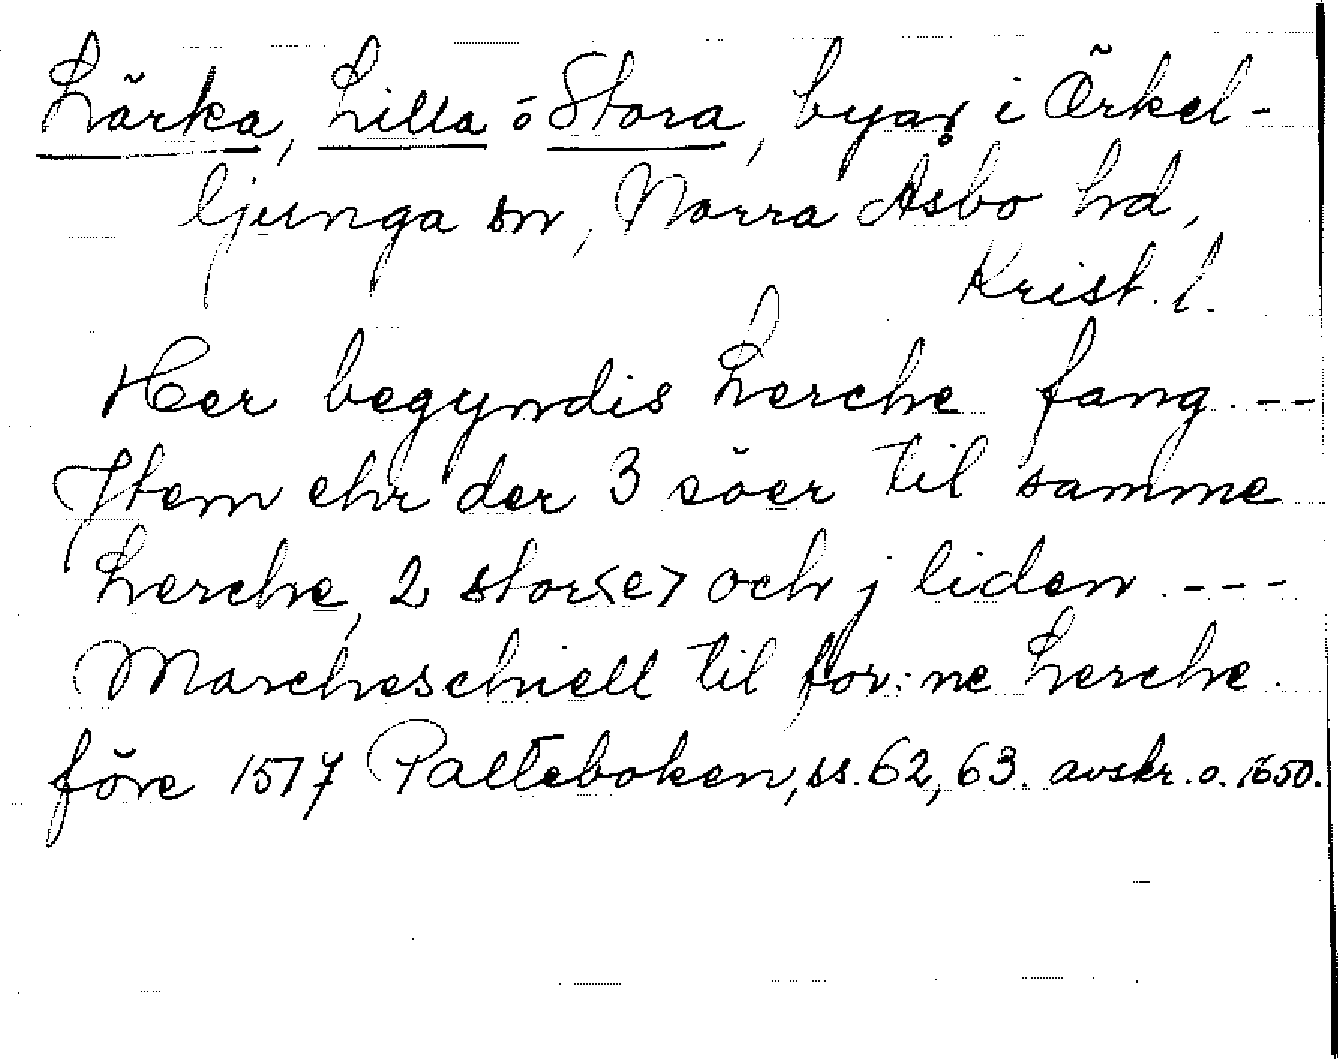 Lärka, Lilla o Stora, byar i Örkel-
ljunga sn, Norra Åsbo hd,
Krist. l.
Her begyndis Lerche fang. --
Item ehr der 3 söer til samme
Lerche, 2 stor<e> och j liden ---
Marcheschiell til for:ne Lerche.
före 1517 Palteboken, ss. 62, 63. avskr. o. 1650.